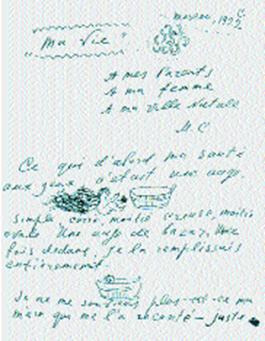 moscou, 1922
"Ma Vie"
A mes Parents
A ma femme
A ma ville Natale
M. C
Ce que d'abord m'a sauté
aux yeux c'était une auge.
simple carré, moitié creuse, moitié
ovale Une auge de bazar, Une
fois dedans, je la remplissais
entièrement
Je ne me souviens plus - est-ce ma
mère qui me l'a raconté - juste